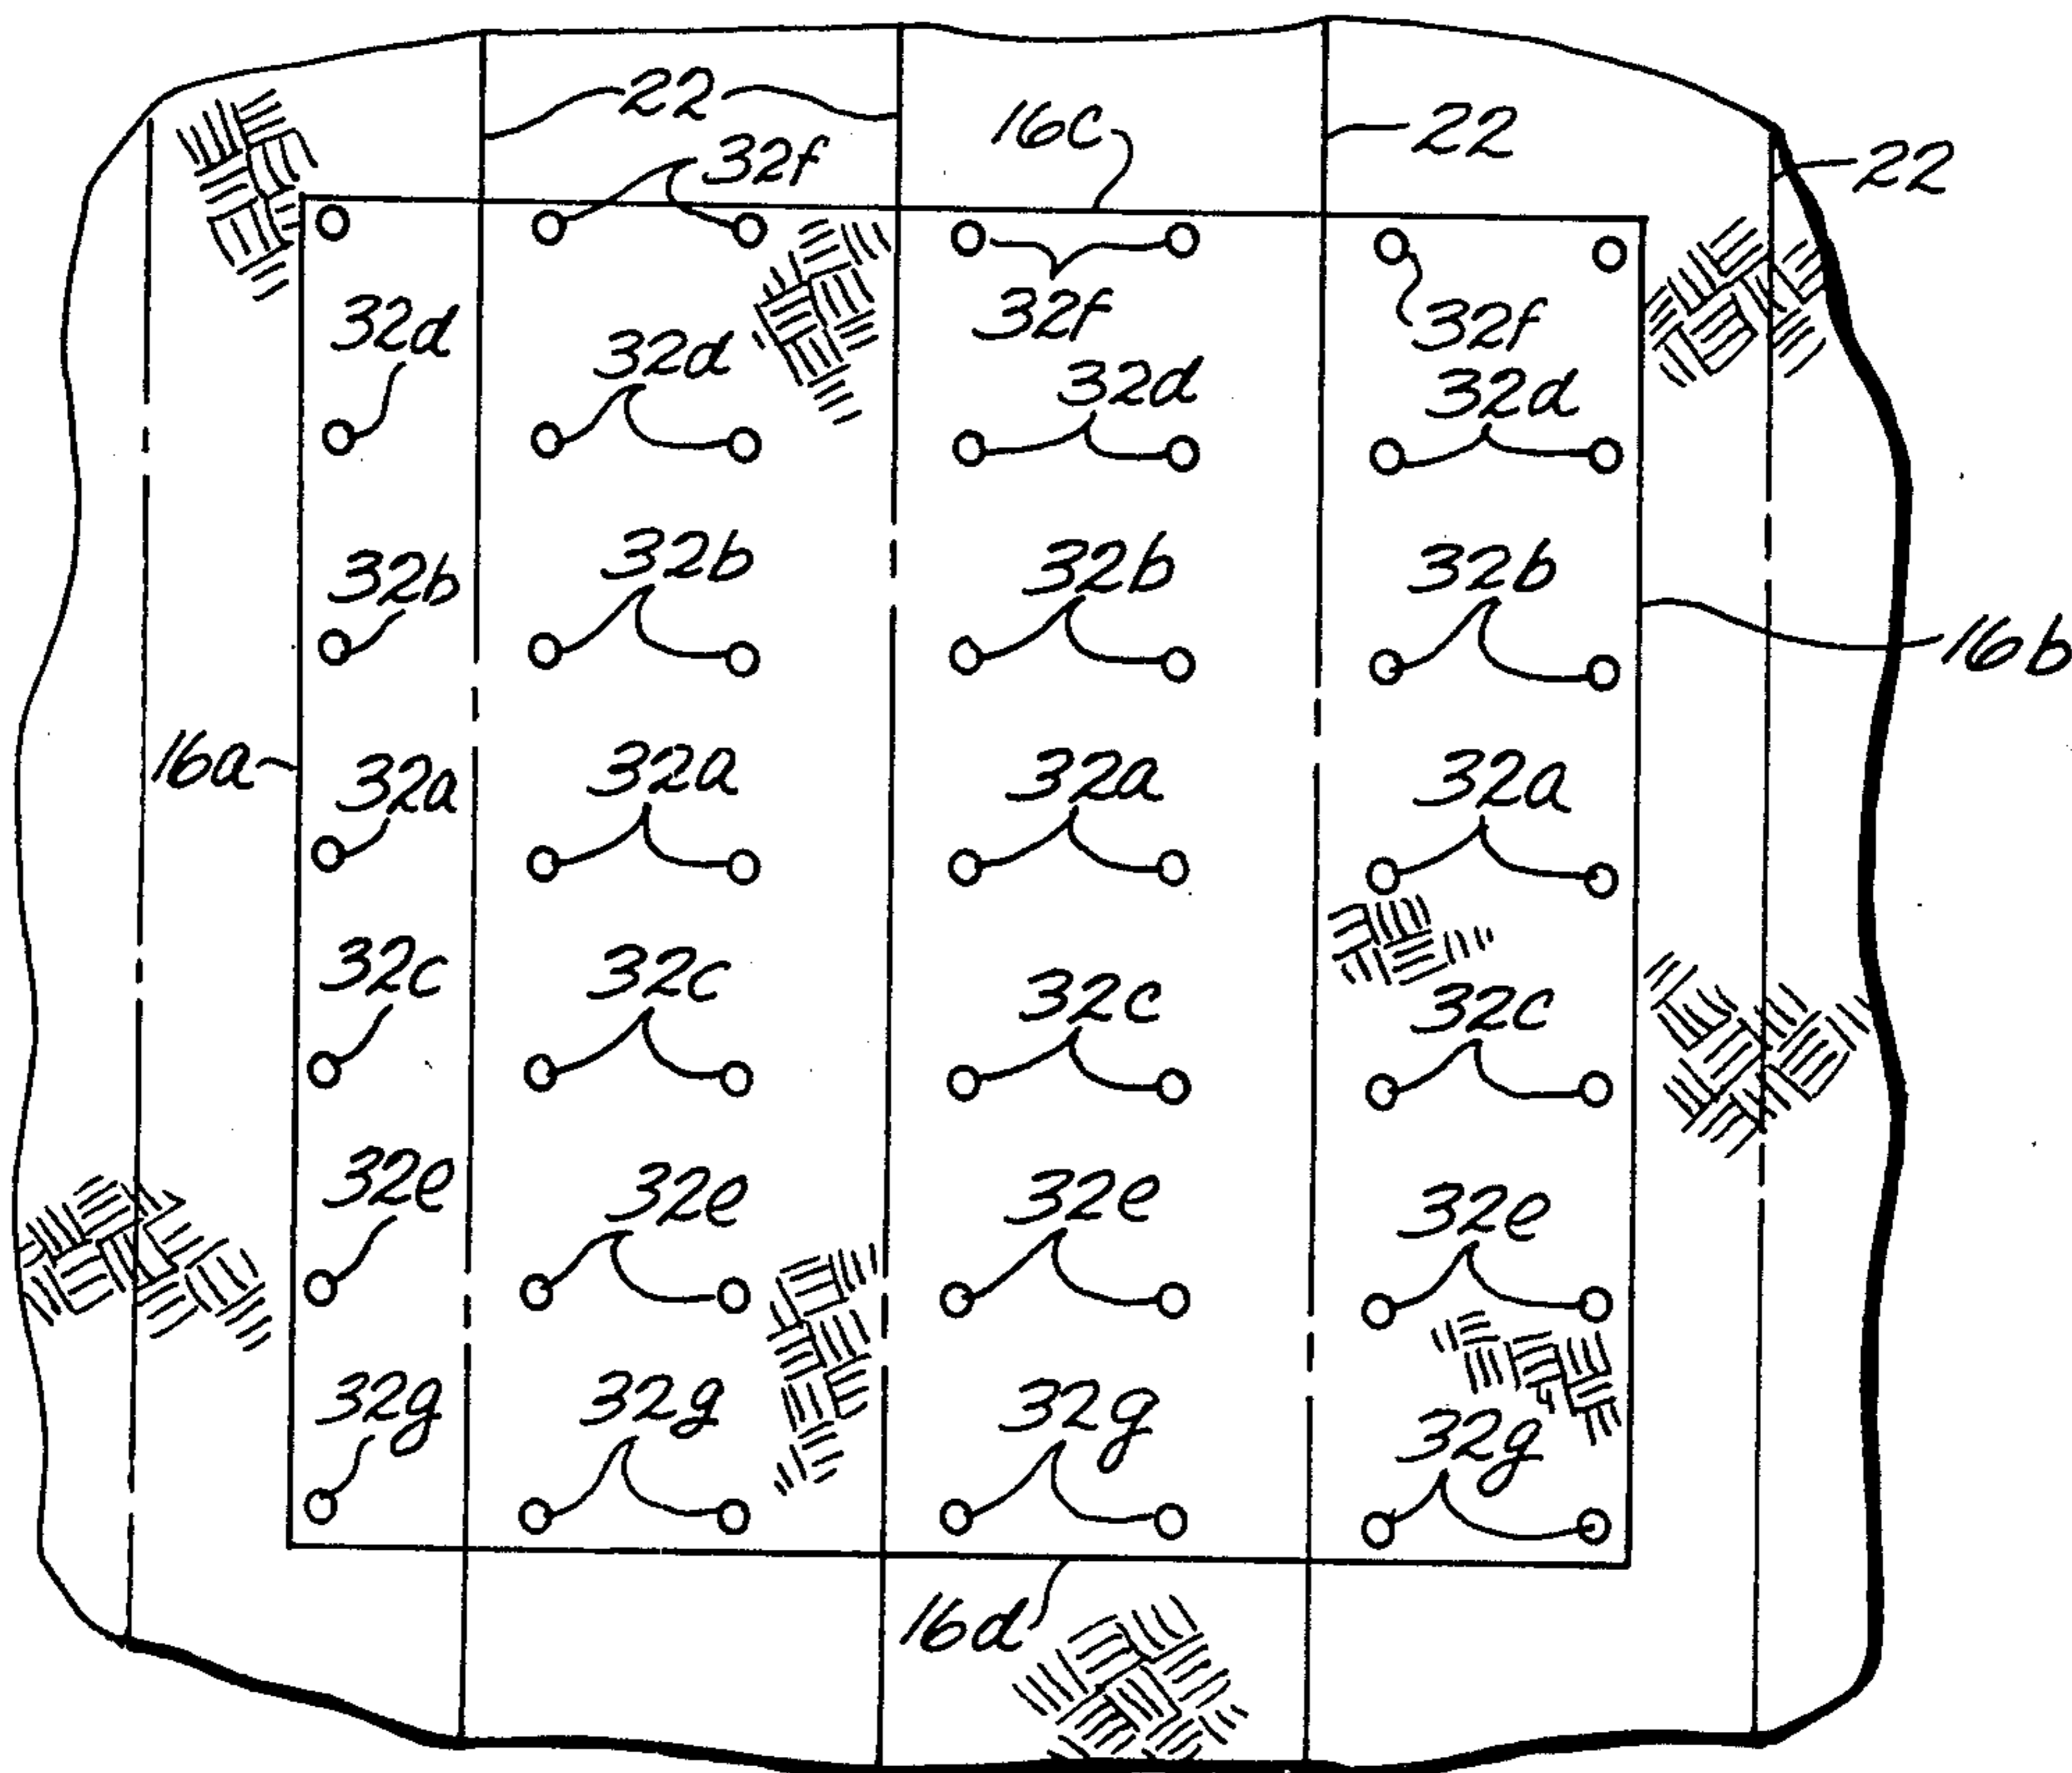 22
16c
22
22
32f
32d
32d
32f
32d
32f
32d
32b
32b
32b
32b
16b
16a
32a
32a
32a
32a
32c
32c
32c
32c
32e
32e
32e
32e
32g
32g
32g
32g
16d